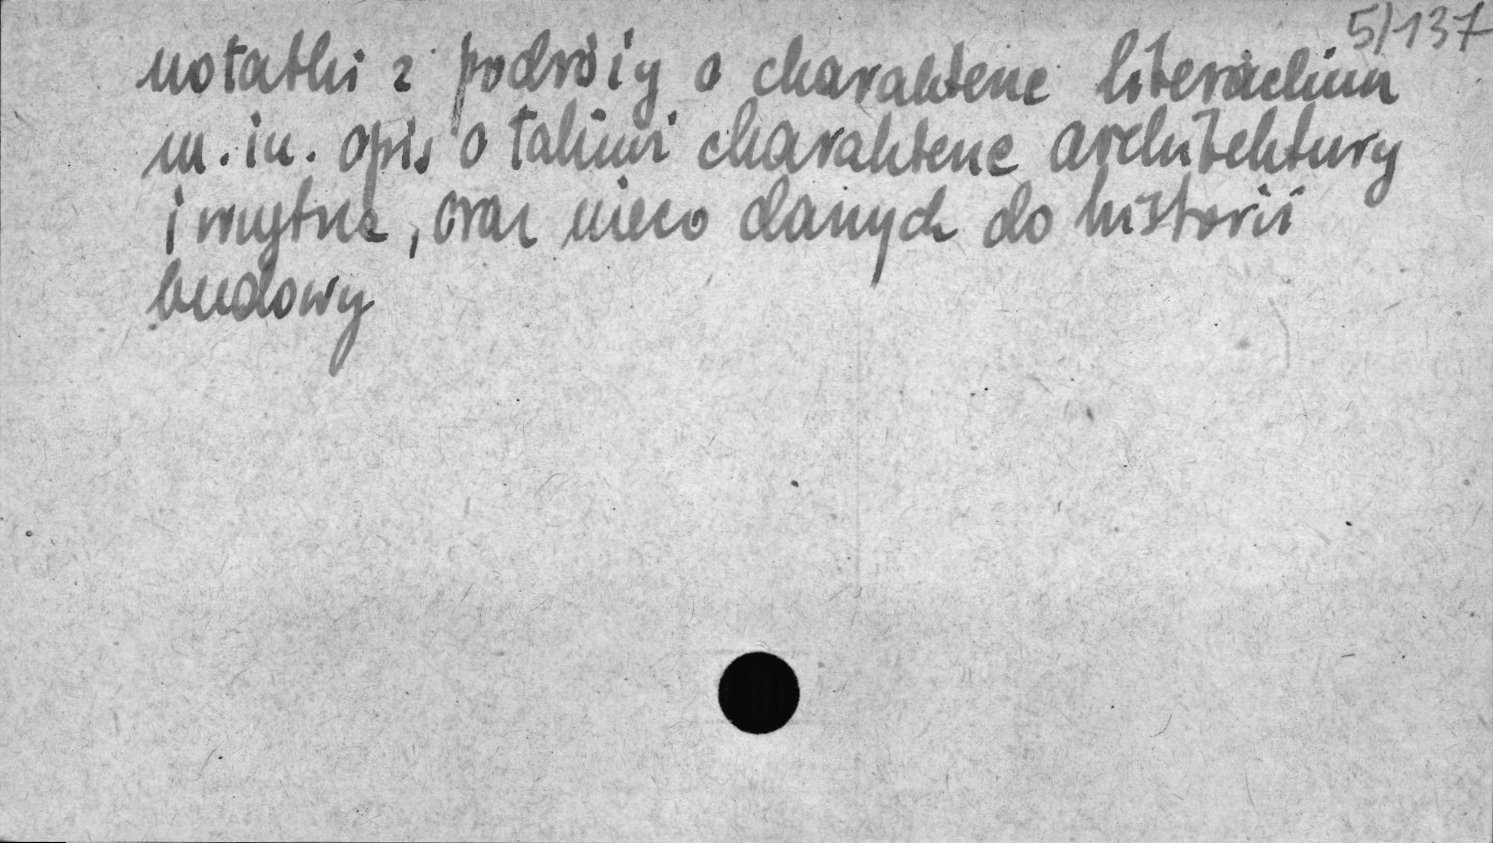 5/137
notatki z podróży o charakterze literackim
m.in. opis o takimż charakterze architektury
i wnętrza, oraz nieco danych do historii
budowy